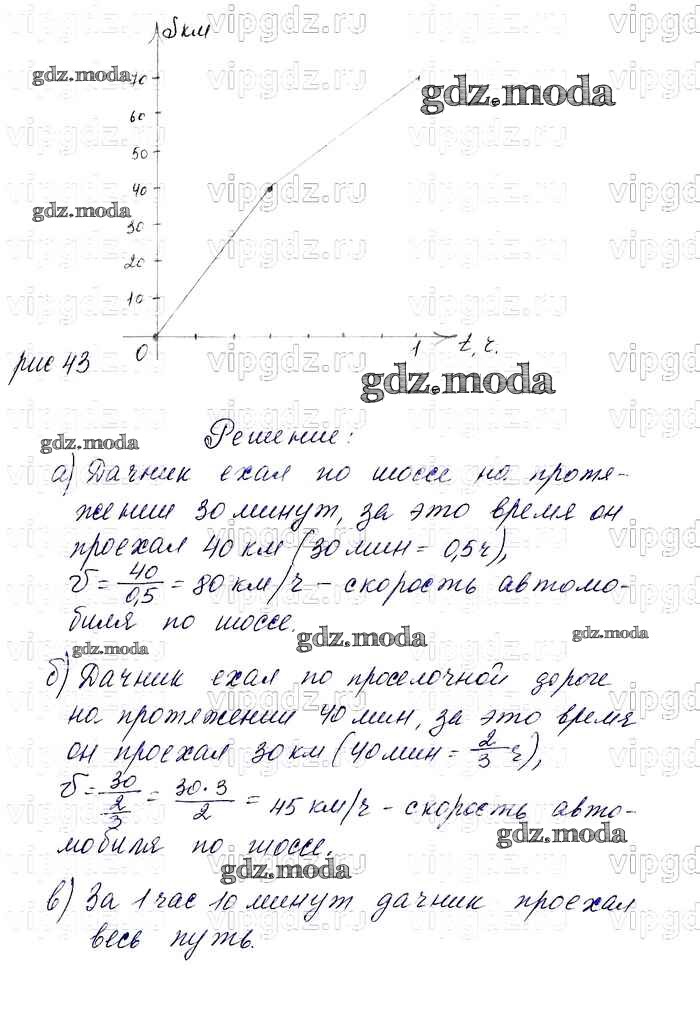 S км
70
60
50
40
30
20
10
0
1
t, ч.
рис 43
Решение:
а) Дачник ехал по шоссе на протя-
жении 30 минут, за это время он
проехал 40 км (30 мин = 0,5 ч),
v = 40/0,5 = 80 км/ч - скорость автомо-
биля по шоссе.
б) Дачник ехал по проселочной дороге
на протяжении 40 мин, за это время
он проехал 30 км (40 мин = 2/3 ч),
v = 30/(2/3) = 30·3/2 = 45 км/ч - скорость авто-
мобиля по шоссе.
в) За 1 час 10 минут дачник проехал
весь путь.
gdz.moda
vipgdz.ru